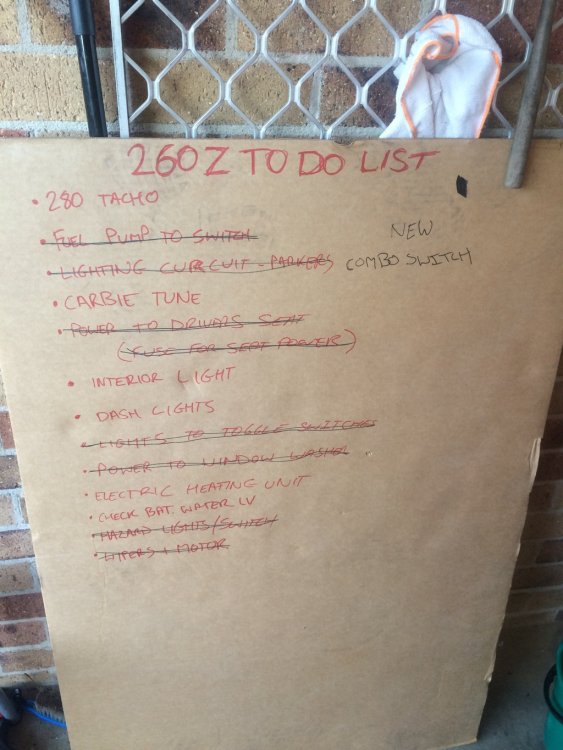 260Z TO DO LIST
• 280 TACHO
• FUEL PUMP TO SWITCH
NEW
• LIGHTING CURCUIT - PARKERS COMBO SWITCH
• CARBIE TUNE
• POWER TO DRIVARS SEAT
(FUSE FOR SEAT POWER)
• INTERIOR LIGHT
• DASH LIGHTS
• LIGHTS TO TOGGLE SWITCHES
• POWER TO WINDOW WASHER
• ELECTRIC HEATING UNIT
• CHECK BAT. WATER LV
• HAZARD LIGHTS/SWITCH
• WIPERS + MOTOR